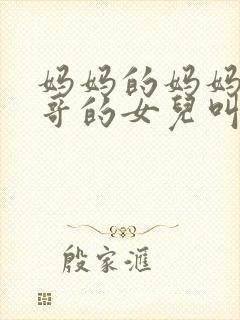 妈妈的妈妈
哥的女兒叫
殷家滙